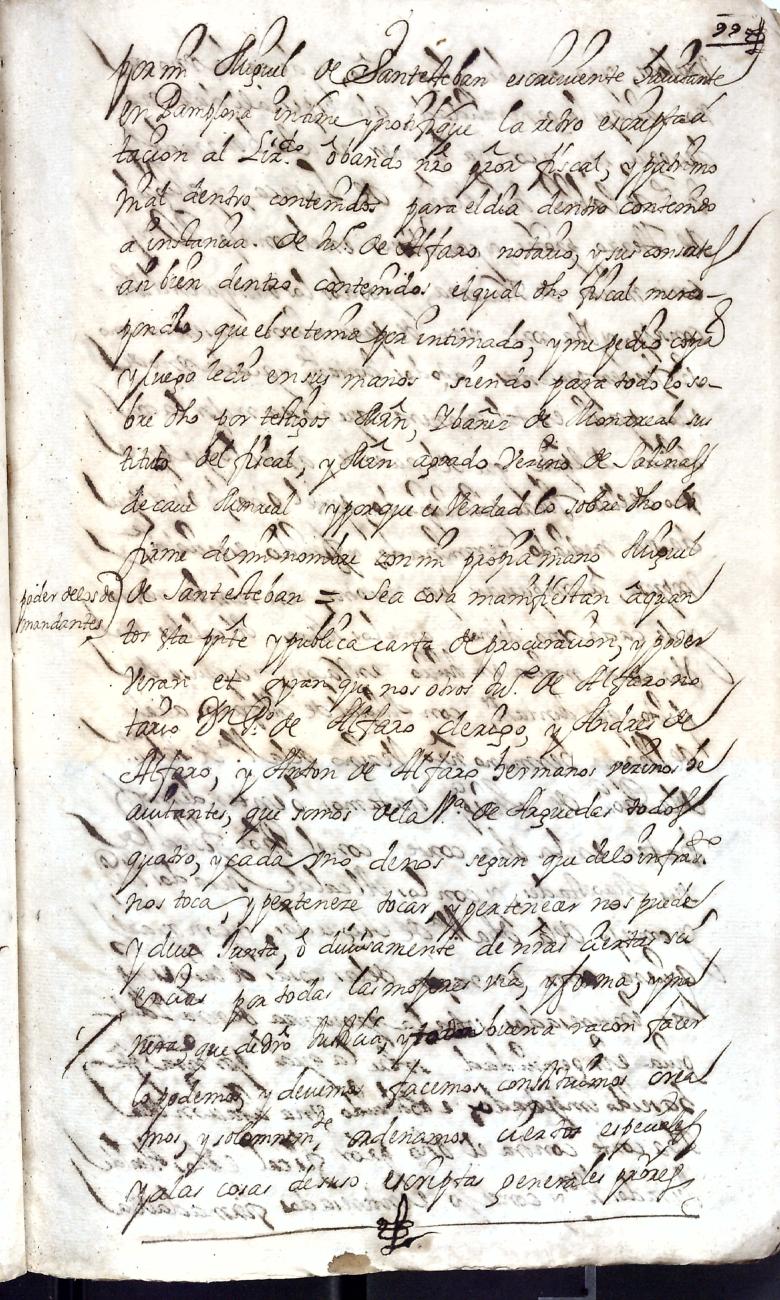 99
por mi Miguel de Santesteban escriuiente hauitante
en Pamplona intime y notifique la retro escripta ci
tacion al Lizdo. obando nro pror fiscal, y patrimo
nial dentro contenido para el dia dentro contenido
a instancia de Ju.º de Alfaro notario, y sus consortes
asi bien dentro contenidos el qual dho fiscal me res-
pondio, que el se tenia por intimado, y me pedio copia
y luego le di en sus manos siendo para todo lo so-
bre dho por testigos Min, Ybañez de Monrreal sus
tituto del fiscal, y Min aguado Vezino de Salinas
de caue Monreal y porque es Verdad lo sobre dho lo
firme de mi nombre con mi propia mano Miguel
poder de los de
mandantes
de Santesteban = Sea cosa manifiesta a quan
tos esta pnte y publica carta de procuracion, y poder
veran et oyran que nos otros Ju.º de Alfaro no
tario Dn P.º de Alfaro clerigo, y Andres de
Alfaro, y Anton de Alfaro hermanos vezinos he
auitantes, que somos de la Vª de Arguedas todos
quatro, y cada vno de nos segun que de lo infra
nos toca, y perteneze tocar, y pertenecer nos puede
y deue Junta, o diuisamente de nras ciertas sci
encias por todas las mejores via, y forma, y ma
nera, que de dro Justicia, y toda buena racon facer
lo podemos, y deuemos facemos constituimos crea
mos, y solemnemte ordenamos ciertos especiales
y a las cosas de suso escriptas generales prores